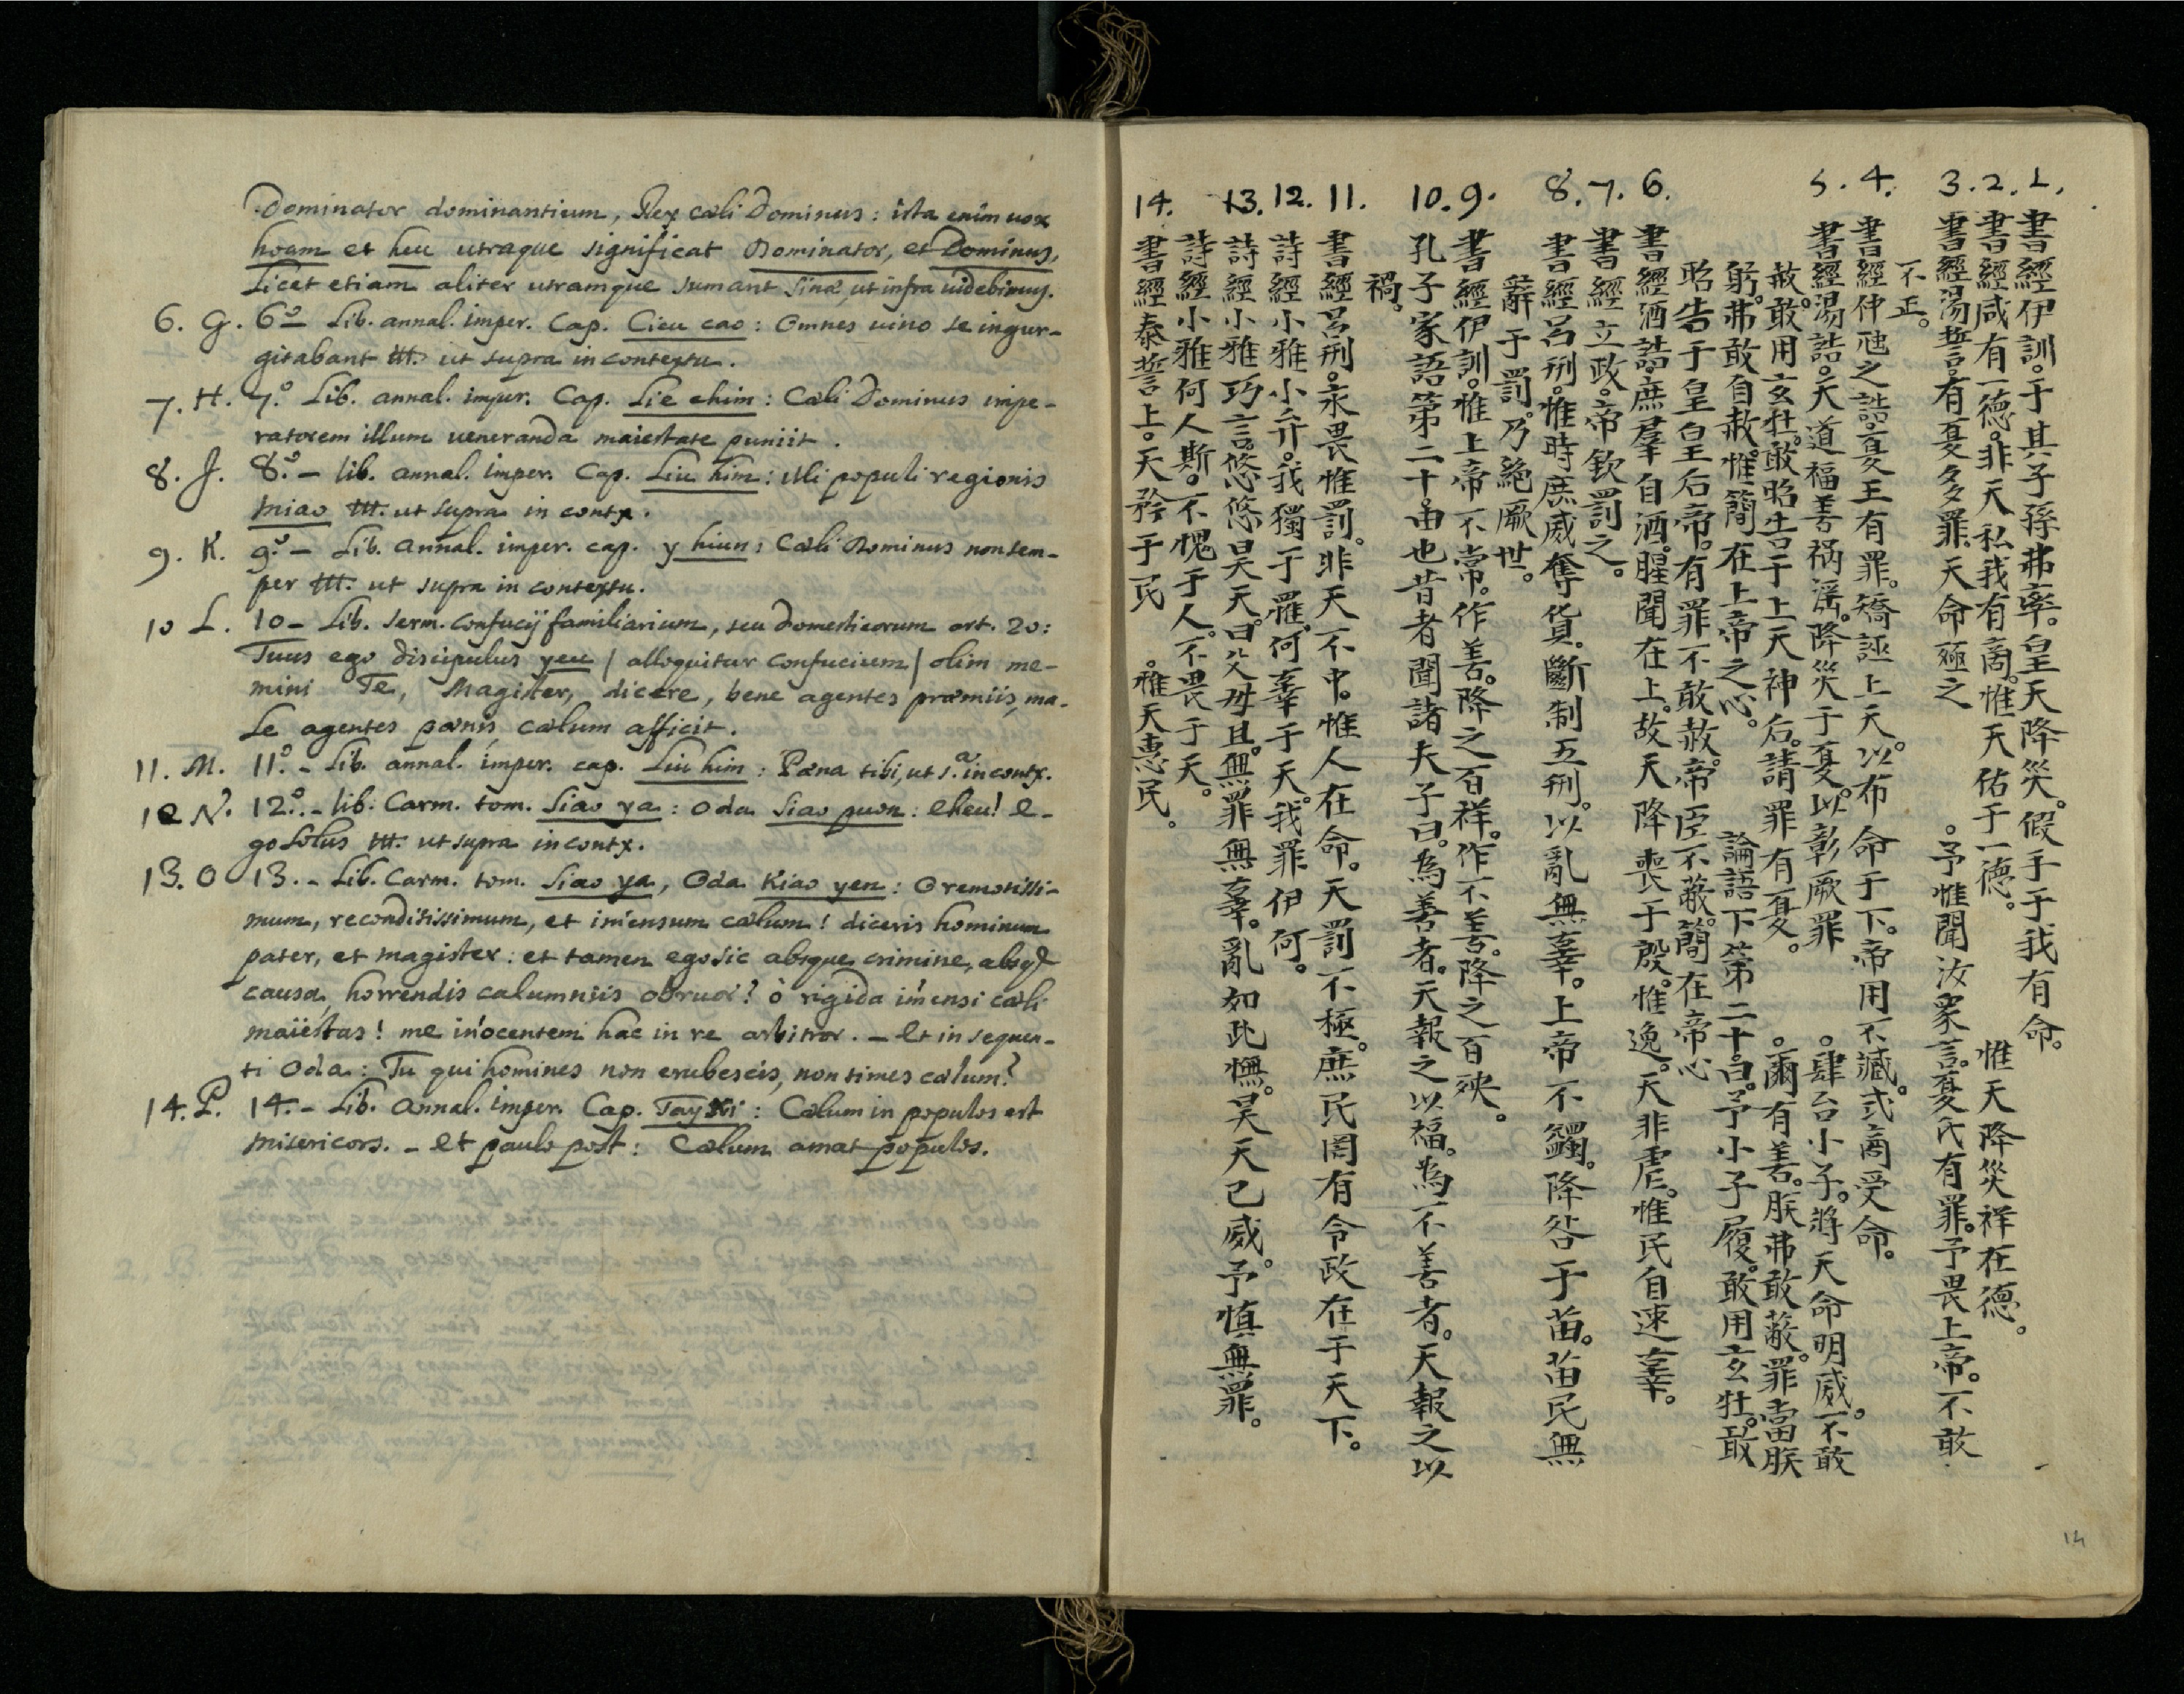 Dominator dominantium, Rex cæli Dominus: ista enim uox
hoam et heu utraque significat Dominator, et Dominus,
Licet etiam aliter utramque sumant Sinæ, ut infra uidebimus.
6. G. 6º - Lib. annal. imper. Cap. Cieu cao: Omnes uino se ingur-
gitabant ut supra in contextu.
7. H. 7.º Lib. annal. imper. Cap. Lie chim: Cæli Dominus impe-
ratorem illum ueneranda maiestate puniit.
8. J. 8.º - lib. annal. imper. Cap. Liu him: illi populi regionis
Miao ut supra in contx.
9. K. 9.º - Lib. annal. imper. cap. y hiun: Cæli Dominus non sem-
per ut supra in contextu.
10 L. 10 - Lib. serm. Confucij familiarium, seu domesticorum art. 20:
Tuus ego discipulus yeu / alloquitur Confucium / olim me-
mini Te, Magister, dicere, bene agentes præmiis, ma-
le agentes pœnis cælum afficit.
11. M. 11.º - Lib. annal. imper. cap. Liu him: Pæna tibi, ut s.ª in contx.
12 N. 12.º - lib. Carm. tom. Siao ya: Oda Siao puon: Eheu! E-
go solus ut supra in contx.
13. O 13. - Lib. Carm. tom. Siao ya, Oda Kiao yen: O remotissi-
mum, reconditissimum, et imensum cælum! diceris hominum
pater, et magister: et tamen ego sic absque crimine, absq
causa, horrendis calumniis obruor? ò rigida imensi cæli
maiestas! me inocentem hac in re arbitror. - Et in sequen-
ti Oda: Tu qui homines non erubescis, non times cælum?
14. P. 14. - Lib. Annal. imper. Cap. Tay Xi: Cælum in populos est
misericors. - Et paulo post: Cælum amat populos.
1. 書經伊訓。于其子孫弗率。皇天降災。假手于我有命。
2. 書經咸有一德。非天私我有商。惟天佑于一德。 惟天降災祥在德。
3. 書經湯誓。有夏多罪。天命殛之 。予惟聞汝衆言。夏氏有罪。予畏上帝。不敢
不正。
4. 書經仲虺之誥。夏王有罪。矯誣上天。以布命于下。帝用不臧。式商受命。
5. 書經湯誥。天道福善禍淫。降災于夏。以彰厥罪 。肆台小子。將天命明威。不敢
赦。敢用玄牡。敢昭告于上天神后。請罪有夏。 。爾有善。朕弗敢蔽。罪當朕
躬。弗敢自赦。惟簡在上帝之心。 論語下第二十。曰。予小子履。敢用玄牡。敢
昭告于皇皇后帝。有罪不敢赦。帝臣不蔽。簡在帝心
6. 書經酒誥。庶羣自酒。腥聞在上。故天降喪于殷。惟逸。天非虐。惟民自速辜。
7. 書經立政。帝欽罰之。
8. 書經呂刑。惟時庶威奪貨。斷制五刑。以亂無辜。上帝不蠲。降咎于苗。苗民無
辭于罰。乃絕厥世。
9. 書經伊訓。惟上帝不常。作善。降之百祥。作不善。降之百殃。
10. 孔子家語第二十。由也昔者聞諸夫子曰。為善者。天報之以福。為不善者。天報之以
禍。
11. 書經呂刑。永畏惟罰。非天不中。惟人在命。天罰不極。庶民罔有令政在于天下。
12. 詩經小雅小弁。我獨于罹。何辜于天。我罪伊何。
13. 詩經小雅巧言。悠悠昊天。曰父母且。無罪無辜。亂如此憮。昊天已威。予慎無罪。
詩經小雅何人斯。不愧于人。不畏于天。
14. 書經泰誓上。天矜于民 。惟天惠民。
14